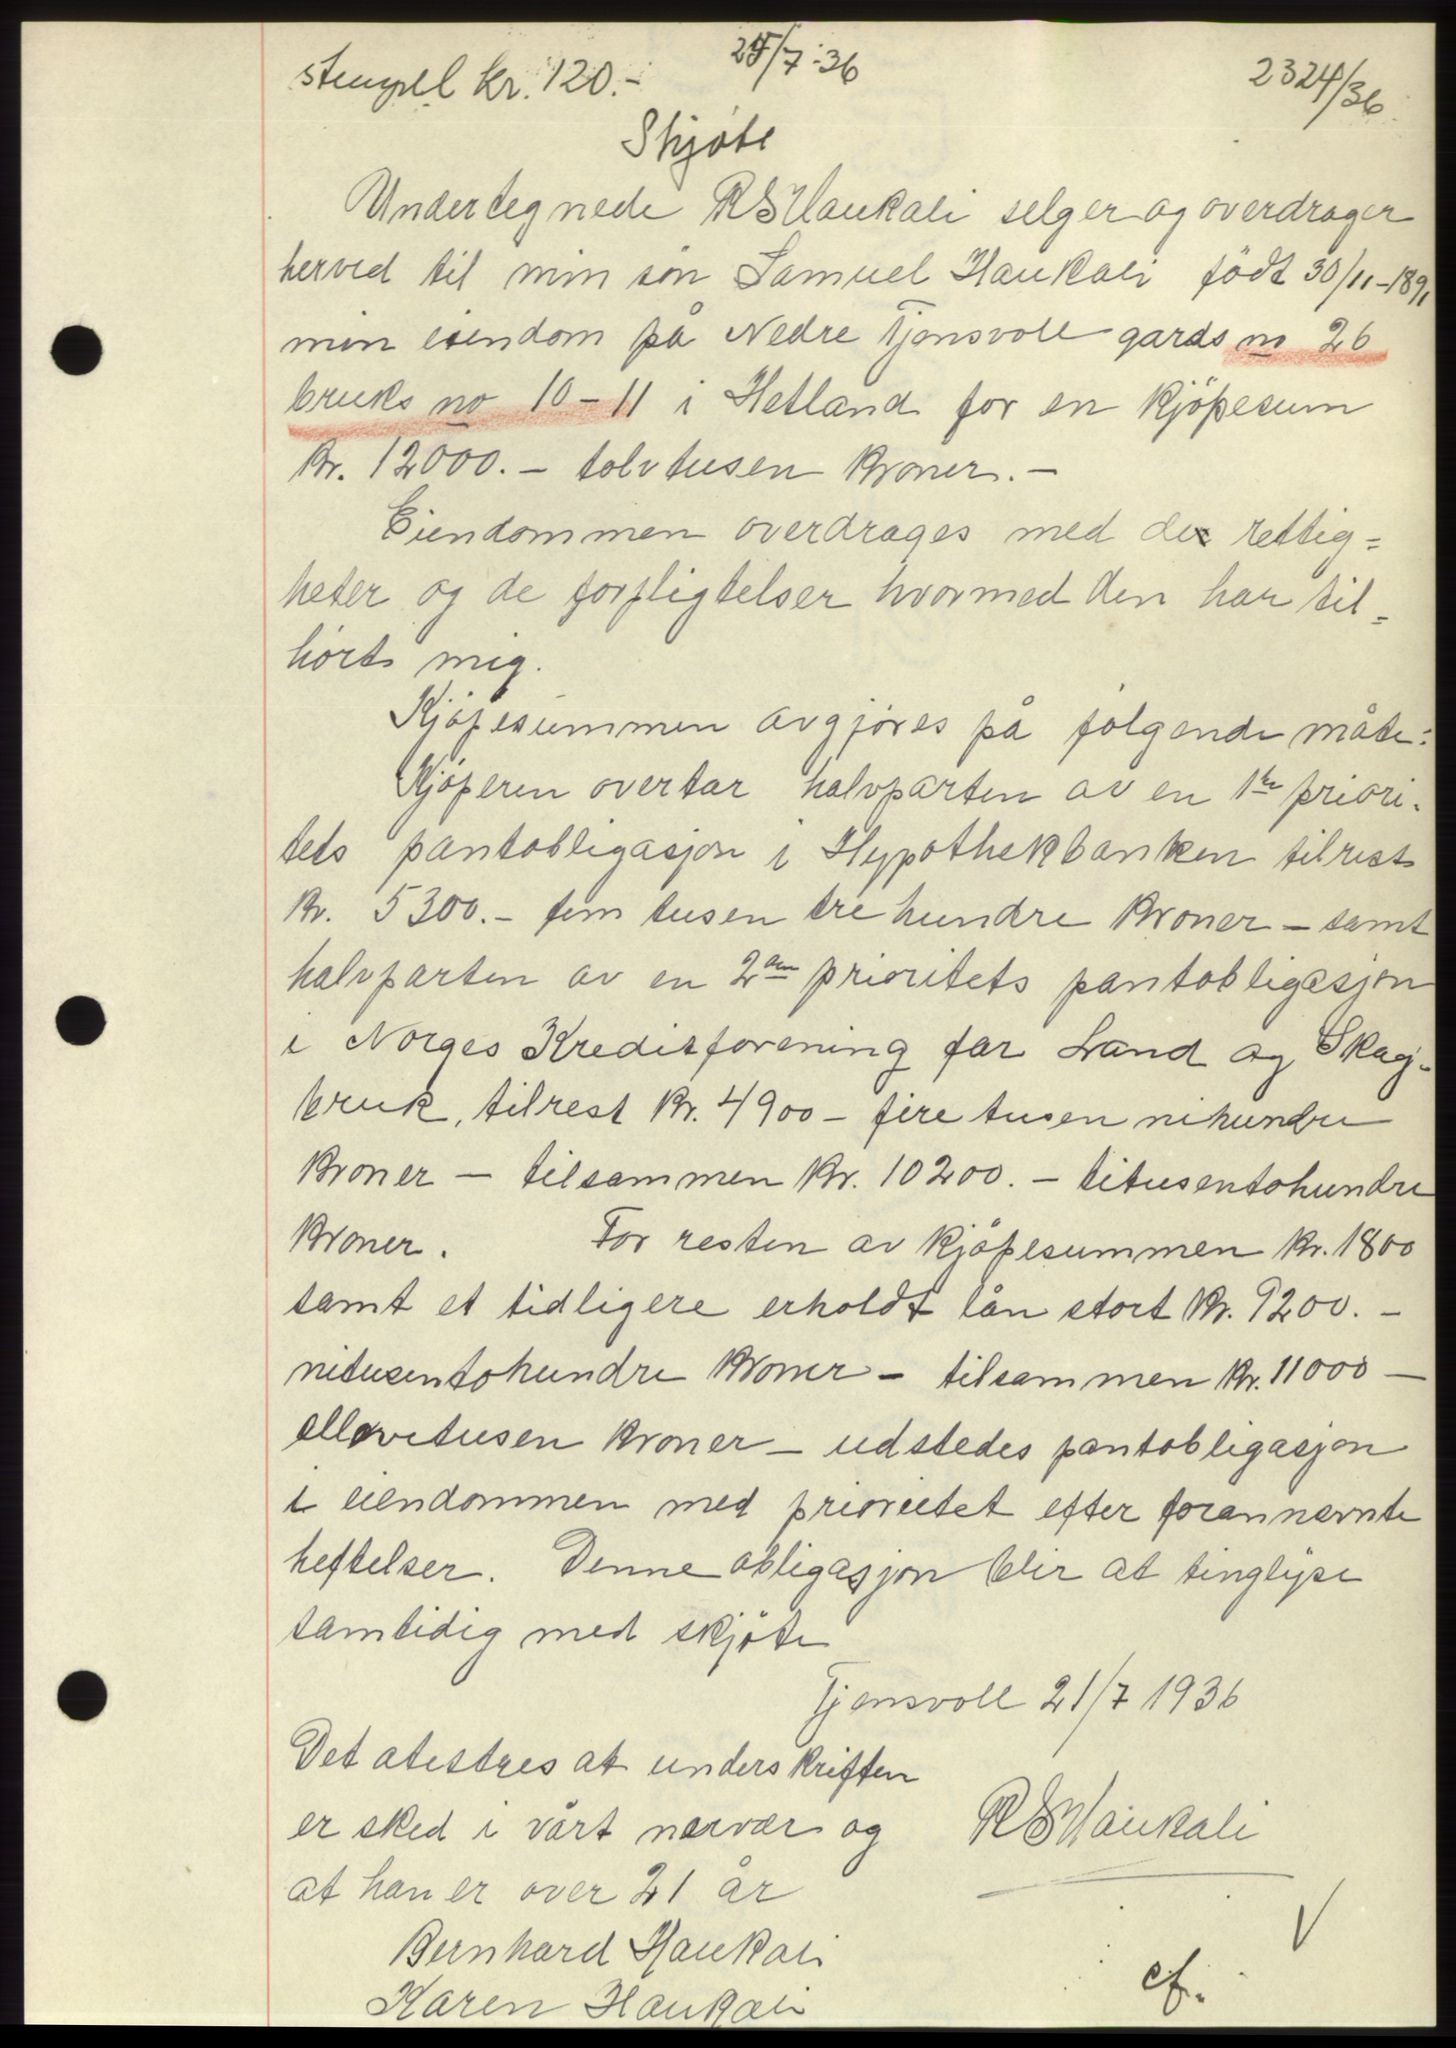 stempel kr. 120.-
25/7-36
2324/36
Skjöte
Undertegnede RSHaukali selger og overdrager
herved til min sön Samuel Haukali födt 30/11-1891
min eiendom på Nedre Tjensvoll gards no 26
bruks no 10-11 i Hetland for en kjöpesum
kr. 12000.- tolvtusen kroner.-
Eiendommen overdrages med de rettig=
heter og de forpligtelser hvormed den har til=
hört mig.
Kjöpesummen avgjöres på fölgende måte:
Kjöperen overtar halvparten av en 1ste priori-
tets pantobligasjon i Hypothekbanken tilrest
kr. 5300.- fem tusen tre hundre kroner - samt
halvparten av en 2den prioritets pantobligasjon
i Norges Kreditforening for Land og Skog-
bruk, tilrest kr. 4900 - fire tusen nihundre
kroner - tilsammen kr. 10200. - titusentohundre
kroner. For resten av kjöpesummen kr. 1800
samt et tidligere erholdt lån stort kr. 9200. -
nitusentohundre kroner - tilsammen kr. 11000 -
ellevetusen kroner - udstedes pantobligasjon
i eiendommen med prioritet efter forannevnte
heftelser. Denne obligasjon blir at tinglyse
samtidig med skjöte
Tjensvoll 21/7 1936
Det atesteres at underskriften
er sked i vårt nærvær og
RSHaukali
at han er over 21 år
Bernhard Haukali
Karen Haukali